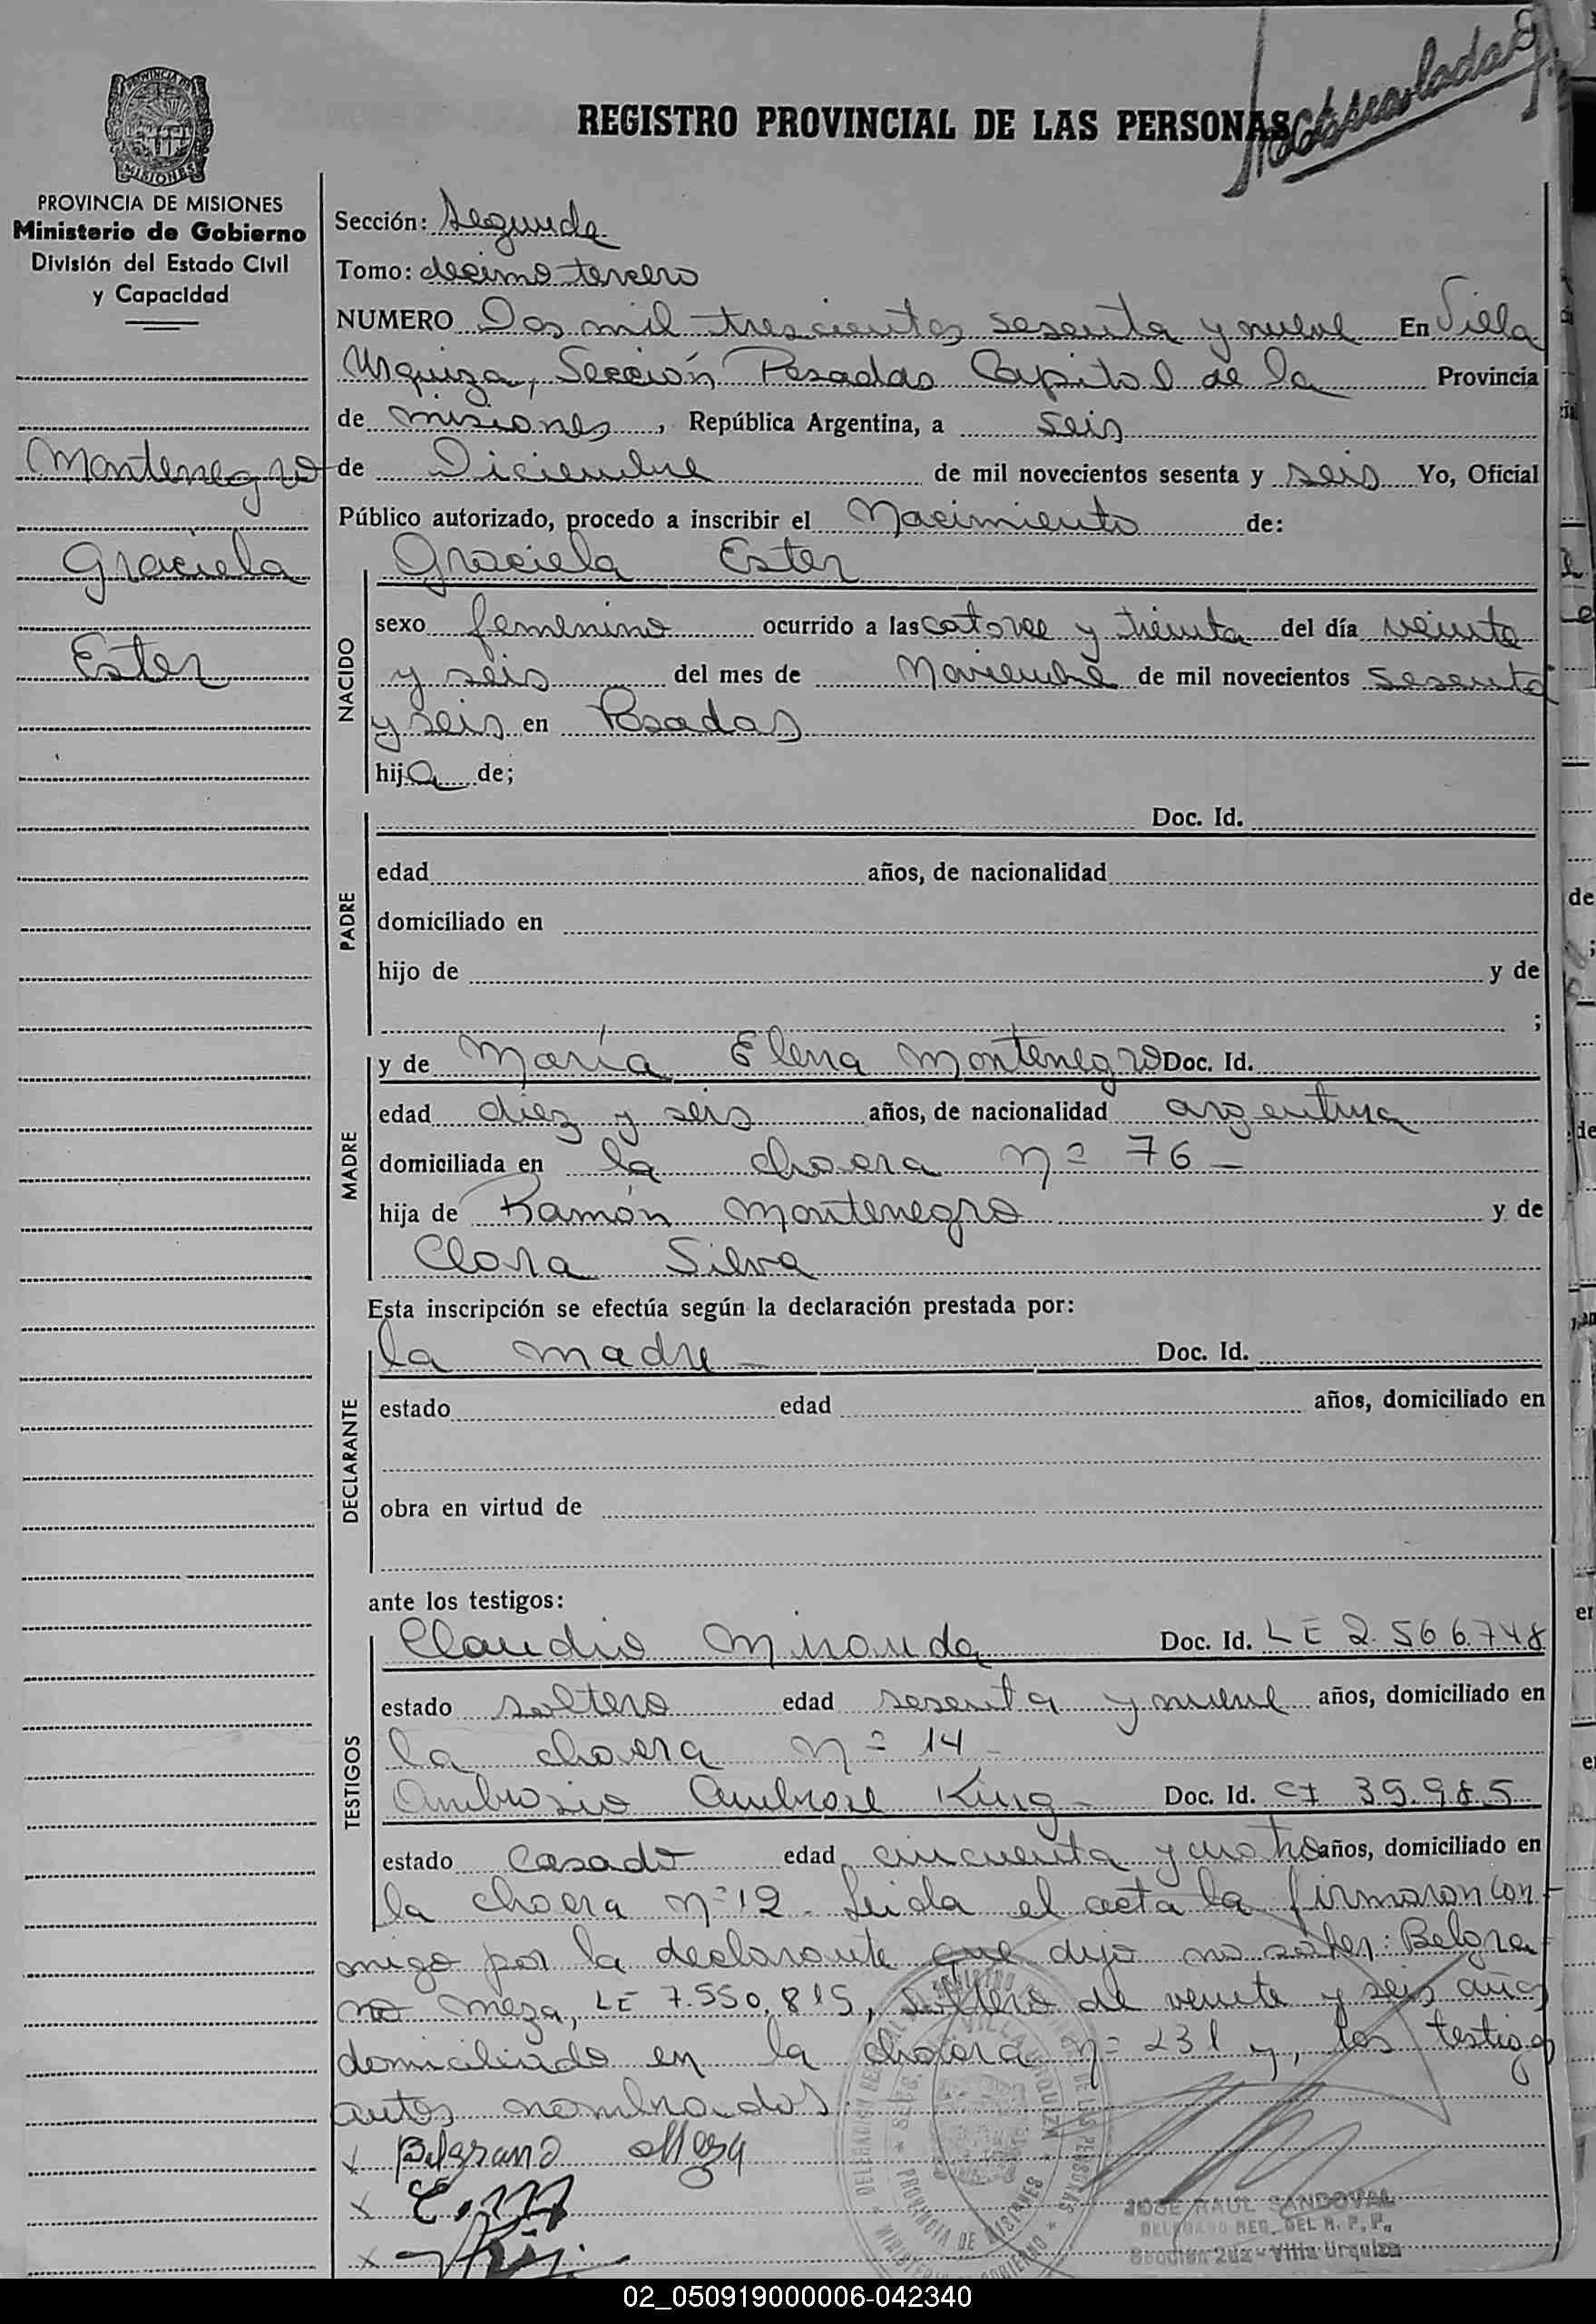 REGISTRO PROVINCIAL DE LAS PERSONAS
PROVINCIA DE MISIONES
Ministerio de Gobierno
División del Estado Civil
y Capacidad
Montenegro
Graciela
Ester
Sección: Segunda
Tomo: decimo tercero
NUMERO Dos mil trescientos sesenta y nueve En Villa
Urquiza, Sección Posadas Capital de la Provincia
de misiones, República Argentina, a seis
de Diciembre de mil novecientos sesenta y seis Yo, Oficial
Público autorizado, procedo a inscribir el Nacimiento de:
NACIDO
Graciela Ester
sexo femenino ocurrido a las catorce y treinta del día veinte
y seis del mes de Noviembre de mil novecientos sesenta
y seis en Posadas
hija de;
PADRE
Doc. Id.
edad años, de nacionalidad
domiciliado en
hijo de y de
;
MADRE
y de María Elena Montenegro Doc. Id.
edad diez y seis años, de nacionalidad argentina
domiciliada en la chacra nº 76 -
hija de Ramón Montenegro y de
Clara Silva
Esta inscripción se efectúa según la declaración prestada por:
DECLARANTE
la madre - Doc. Id.
estado edad años, domiciliado en
obra en virtud de
ante los testigos:
TESTIGOS
Claudio Miranda Doc. Id. LE 2.566.748
estado soltero edad sesenta y nueve años, domiciliado en
la chacra nº 14 -
Ambrosio Ambrose King - Doc. Id. CI 39.985
estado Casado edad cincuenta y cuatro años, domiciliado en
la chacra nº 12. Leida el acta la firmaron con-
migo por la declarante que dijo no saber: Belgra-
no meza, LE 7.550.815, soltero de veinte y seis años
domiciliado en la chacra nº 231 y, los testigos
antes nombrados
x Belgrano Meza
x
x
JOSE RAUL SANDOVAL
DELEGADO REG. DEL R. P. P.
Sección 2da - Villa Urquiza
02_050919000006-042340